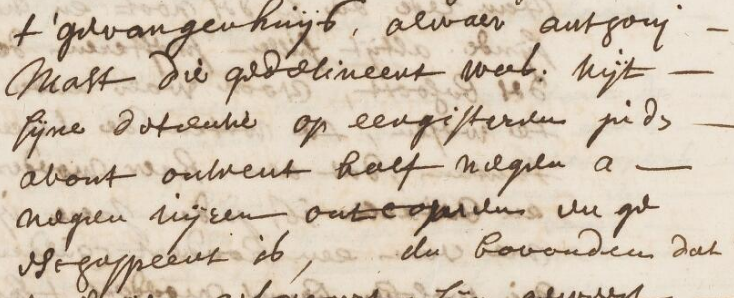 t'gevangenhuijs, alwaer anthonij
Mast die gedetineert was. Uijt
sijne detentie op eergisteren
avont ontrent half negen a
negen uijren ontcomen en ge
eschappeert is, en bevonden dat